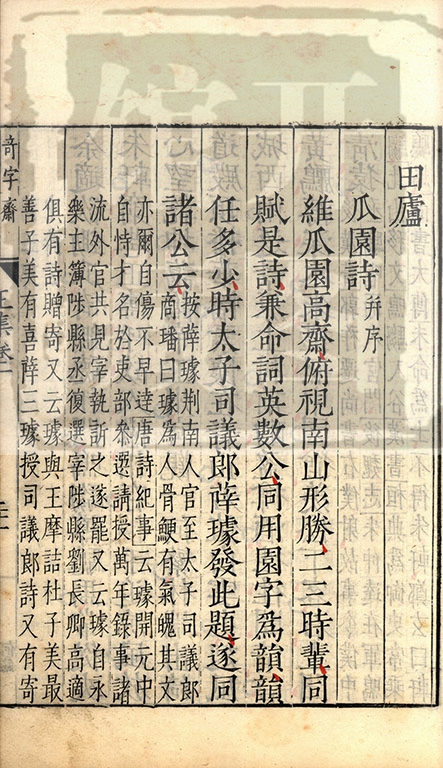 田廬
瓜園詩并序
維瓜園高齋俯視南山形勝二三時輩同
賦是詩兼命詞英數公同用園字為韻韻
任多少時太子司議郎薛璩發此題遂同
諸公云
按薛璩荆南人官至太子司議郎
商璠曰璩為人骨鯁有氣魄其文
亦爾自傷不早達唐詩紀事云璩開元中
自恃才名於吏部參選請授萬年錄事諸
流外官共見宰執訴之遂罷又云璩自永
樂主簿陟縣丞復選宰陟縣劉長卿高適
俱有詩贈寄又云璩與王摩詰杜子美最
善子美有喜薛三璩授司議郎詩又有寄
奇字齋